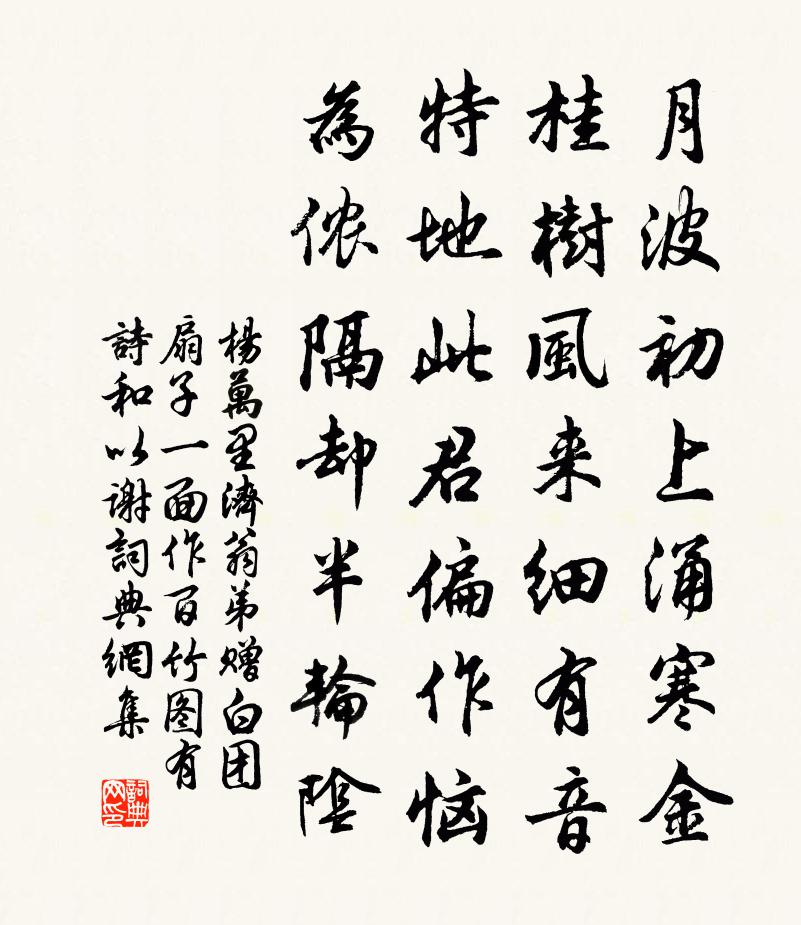 月波初上涌寒金
桂樹風来细有音
特地此君偏作恼
為侬隔却半輪陰
楊萬里濟翁弟赠白团
扇子一面作百竹图有
詩和以谢詞典網集
詞典
网印